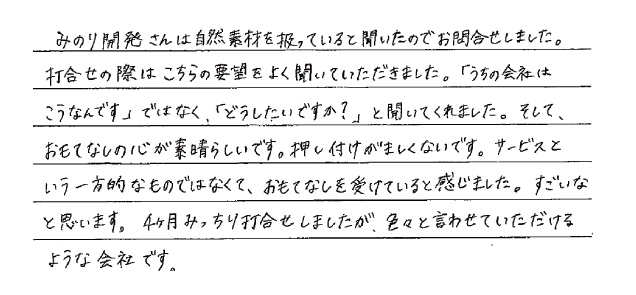 みのり開発さんは自然素材を扱っていると聞いたのでお問合せしました。
打合せの際はこちらの要望をよく聞いていただきました。「うちの会社は
こうなんです」ではなく、「どうしたいですか？」と聞いてくれました。そして、
おもてなしの心が素晴らしいです。押し付けがましくないです。サービスと
いう一方的なものではなくて、おもてなしを受けていると感じました。すごいな
と思います。4ヶ月みっちり打合せしましたが、色々と言わせていただける
ような会社です。